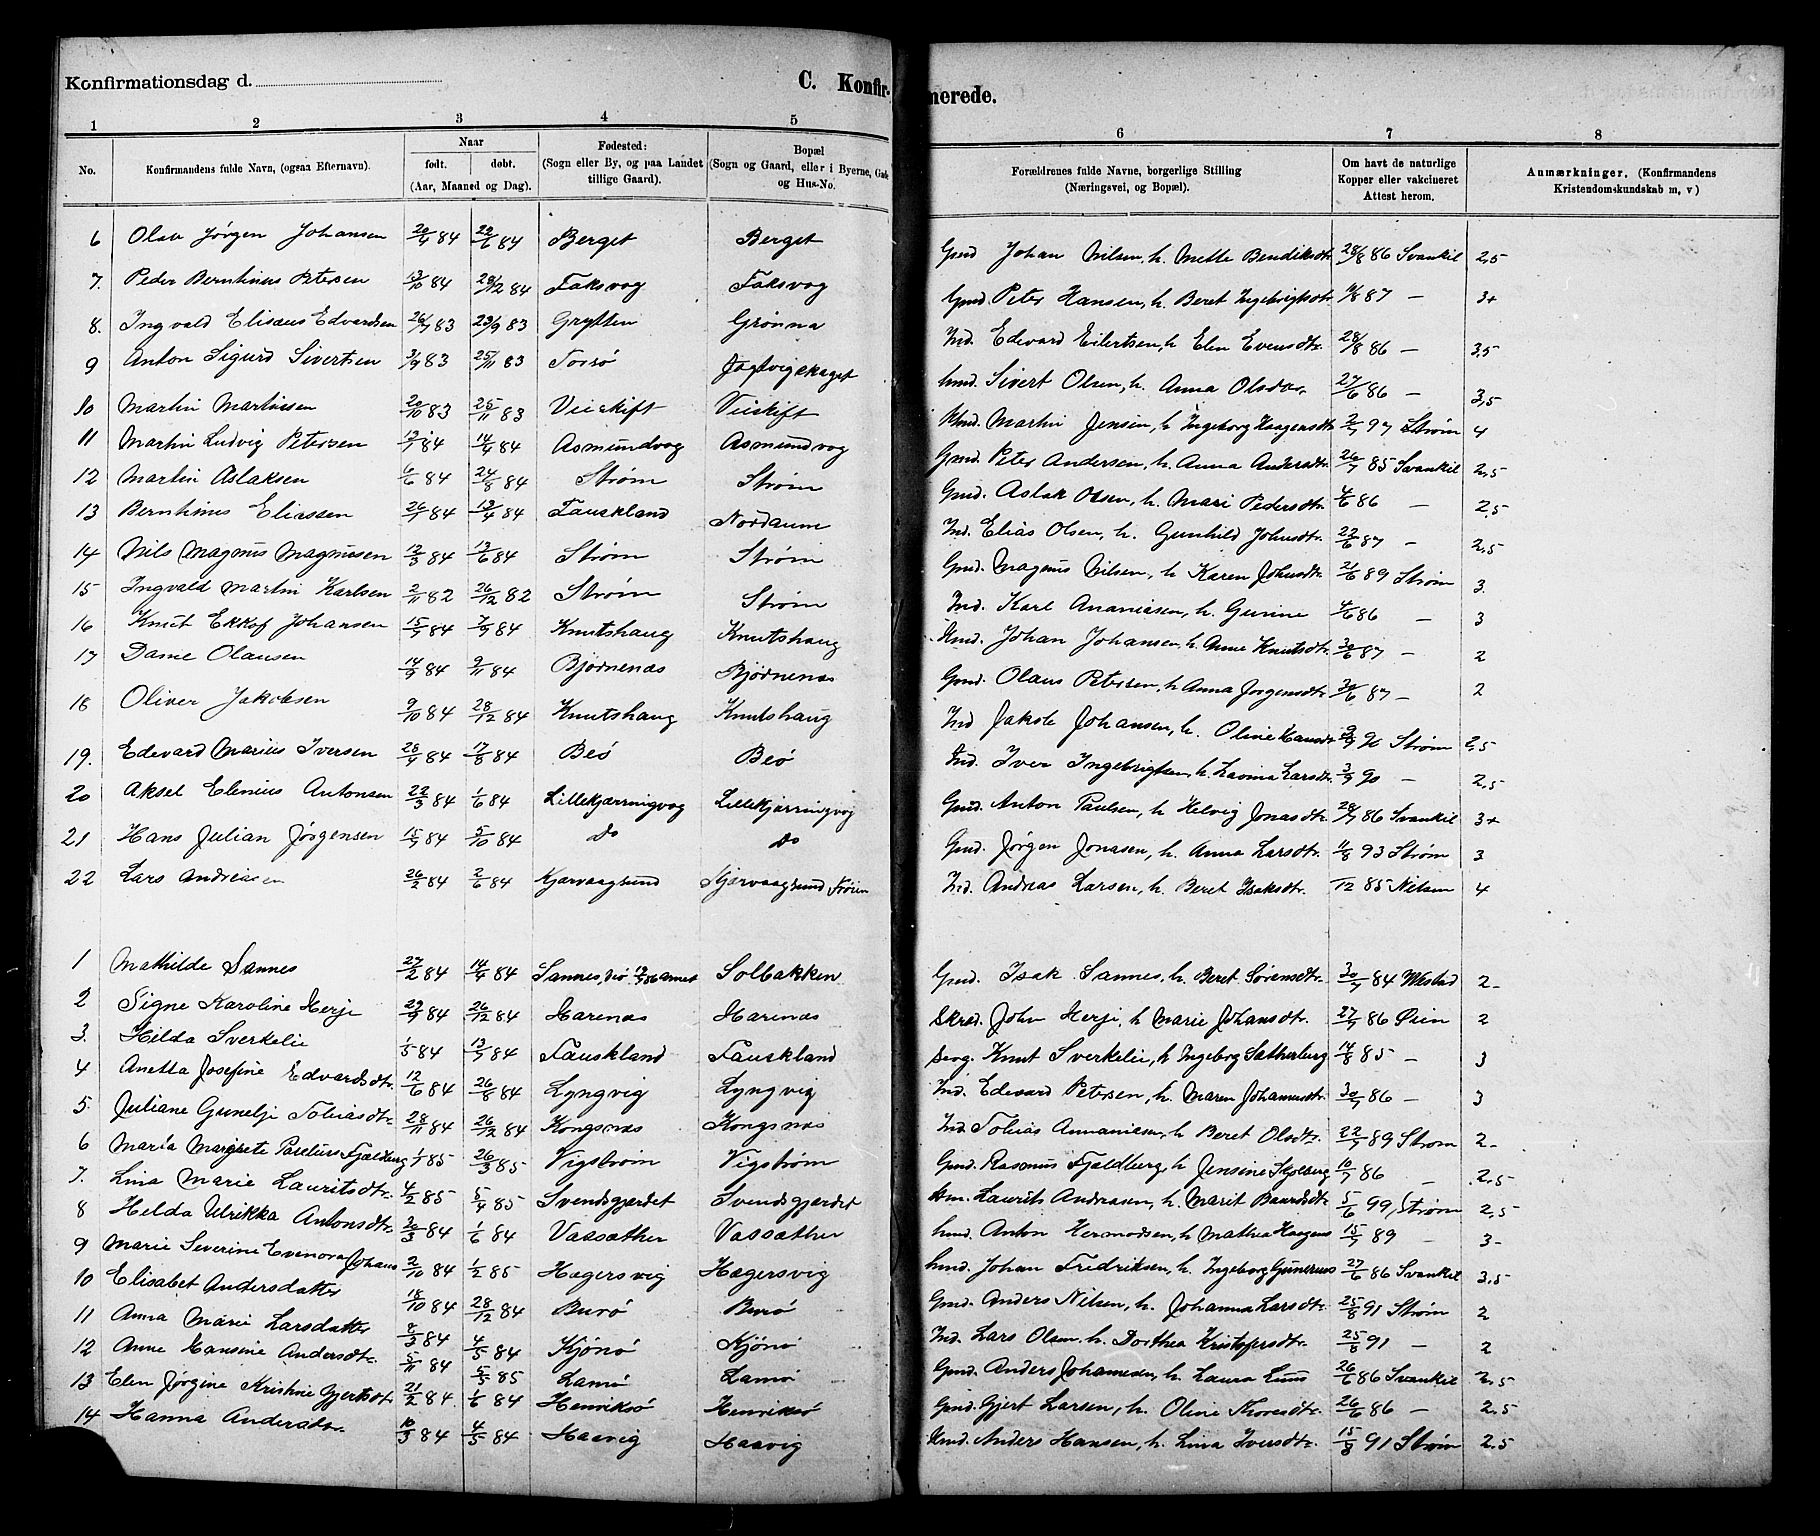 Konfirmationsdag d.
C. Konfir-
merede.
1 2 3 4 5 6 7 8
No.
Konfirmandens fulde Navn, (ogsaa Efternavn).
Naar
født. døbt.
(Aar, Maaned og Dag).
Fødested:
(Sogn eller By, og paa Landet
tillige Gaard).
Bopæl
(Sogn og Gaard, eller i Byerne, Gade
og Hus-No.
Forældrenes fulde Navne, borgerlige Stilling
(Næringsvei, og Bopæl).
Om havt de naturlige
Kopper eller vakcineret
Attest herom.
Anmærkninger. (Konfirmandens
Kristendomskundskab m, v)
6 Olav Jørgen Johansen 20/4 84 22/6 84 Berget Berget Gmd Johan Nilsen, h. Mette Bendiksdtr 28/8 86 Svankil 2,5
7. Peder Bernhinus Petersen 13/10 84 28/12 84 Faksvog Faksvog Gmd. Peter Hansen, h. Beret Ingebrigtsdtr 11/8 87 — 3+
8. Ingvald Elisæus Edvardsen 26/7 83 23/9 83 Grytten Grønna Ind. Edevard Eilertsen, h. Elen Evensdtr. 28/8 86 — 3,5
9 Anton Sigurd Sivertsen 3/9 83 25/11 83 Torsø Jagtvigskaget hmd. Sivert Olsen, h. Anna Olsdtr. 27/6 86 — 3,5
10 Martin Martinsen 20/10 83 25/11 83 Veiskift Veiskift Martin Jensen, h Ingeborg Haagensdtr 2/7 97 Strøm 4
11 Martin Ludvig Petersen 13/1 84 14/4 84 Asmundvog Asmundvog Gmd. Peter Andersen, h. Anna Andersdtr. 26/7 85 Svankil 2,5
12 Martin Aslaksen 6/6 84 24/8 84 Strøm Strøm Gmd. Aslak Olsen, h. Mari Pedersdtr. 4/6 86 — 2,5
13 Bernhinus Eliassen 26/1 84 13/4 84 Fauskland Nordaune Ind. Elias Olsen, h. Gunhild Johnsdtr. 22/6 87 - 2,5
14 Nils Magnus Magnusen 12/3 84 13/6 84 Strøm Strøm Gmd. Magnus Nilsen, h. Karen Johnsdtr. 21/6 89 Strøm 3.
15 Ingvald Martin Karlsen 2/11 82 26/12 82 Strøm Strøm Ind. Karl Ananiasen, h. Gurine 4/6 86 — 3
16 Knut Ekkof Johansen 15/7 84 7/9 84 Knutshaug Knutshaug Johan Johansen, h. Anne Knutsdtr. 30/6 87 - 2
17 Dame Olausen 14/9 84 9/11 84 Bjørnenæs Bjørnenæs Gmd. Olaus Petersen, h Anna Jørgensdtr. 30/6 87 - 2
18 Oliver Jakobsen 9/10 84 28/12 84 Knutshaug Knutshaug Ind Jakob Johansen, h. Oline Hansdtr 90 Strøm 2,5
19. Edevard Marius Iversen 28/4 84 17/8 84 Beø Beø Ind. Iver Ingebrigtsen, h. Lavina Larsdtr. 3/7 90 - 2,5
20 Aksel Elenius Antonsen 22/3 84 1/6 84 Lillekjærringvog Lillekjærringvog Gmd. Anton Paulsen, h Helvig Jonasdtr. 28/7 86 Svankil 3+
21 Hans Julian Jørgensen 15/7 84 5/10 84 Do Do Gmd. Jørgen Jonasen, h. Anna Larsdtr. 11/8 93 Strøm 3
22 Lars Andreasen 26/2 84 2/6 84 Kjærvaagsund Kjærvaagsund Strøm Ind. Andreas Larsen, h. Beret Isaksdtr. /12 85 Nilsen 4
1 Mathilde Sannes 27/2 84 14/4 84 Sannes Solbakken Gmd. Isak Sannes, h. Beret Sørensdtr. 30/7 84 2-
2 Signe Karoline Herje 29/9 84 26/12 84 Harenæs Harenæs Skræd. John Herje, h. Marie Johansdtr. 27/7 86 Øien 2
3. Hilda Sverkelie 1/5 84 13/7 84 Fauskland Fauskland Knut Sverkelie, h Ingeborg Sætherburg 14/8 85 - 3
4 Anetta Josefine Edvardsdtr. 12/6 84 26/8 84 Lyngvig Lyngvig Ind. Edevard Petersen, h. Maren Johannesdtr. 30/7 86 - 3
5. Juliane Gunelje Tobiasdtr. 28/11 84 26/12 84 Kongsnæs Kongsnæs Ind. Tobias Annaniasen, h Beret Olsdtr. 22/7 89 Strøm 2-
6 Maria Margrete Pauline Fjeldberg 1/1 85 26/3 85 Vigstrøm Vigstrøm Gmd. Rasmus Fjeldberg, h Jensine 10/7 86 - 2,5
7. Lina Marie Lauritsdtr. 4/2 85 5/4 85 Svendsgjerdet Svendsgjerdet Laurits Andreasen, h. Marit Baardsdtr. 5/6 99, Strøm 2,5
8 Helda Ulrikka Antonsdtr. 20/3 84 1/6 84 Vassæther Vassæther hmd. Anton Hermodsen, h Mathea Haagens 15/7 89 - 3-
9 Marie Severine Evenora Johans 2/10 84 1/2 85 Hægersvig Hægersvig hmd. Johan Fredriksen, h. Ingeborg Gunerius 27/6 86 Svankil 3,5
10 Elisabet Andersdatter 18/10 84 28/12 84 Burø Burø Gmd. Anders Nilsen, h. Johanna Larsdtr. 25/8 91 Strøm 2
11 Anna Marie Larsdatter 8/3 84 4/5 84 Kjønø Kjønø Ind. Lars Olsen. h. Dorthea Kristofersdtr. 25/8 91 — 2
12 Anne Hansine Andersdtr. 5/11 84 5/5 85 Lamø Lamø Gmd. Anders Johannesen, h. Laura Lund 26/6 86 Svankil 2,5
13 Elen Jørgine Kristine Gjertsdtr. 21/2 84. 1/6 84 Henriksø Henriksø Gmd. Gjert Larsen, h. Oline Thoresdtr. 26/6 86 — 2,5
14 Hanna Andersdtr. 10/3 84 4/5 84 Haavig Haavig Anders Hansen, h. Lina Iversdtr. 15/8 91 Strøm 2,5